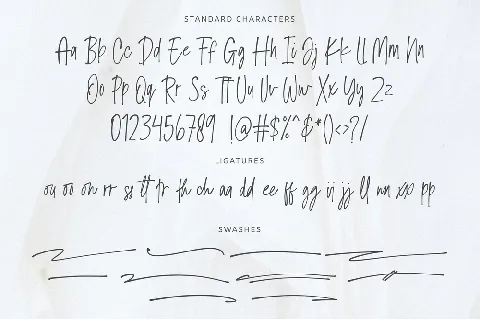 STANDARD CHARACTERS
Aa Bb Cc Dd Ee Ff Gg Hh Ii Jj Kk Ll Mm Nn
Oo Pp Qq Rr Ss Tt Uu Vv Ww Xx Yy Zz
0123456789 !@#$%^&*()<>?/
LIGATURES
ou oo on rr ss tt tr fh ch aa dd ee ff gg ii jj ll nn xp pp
SWASHES